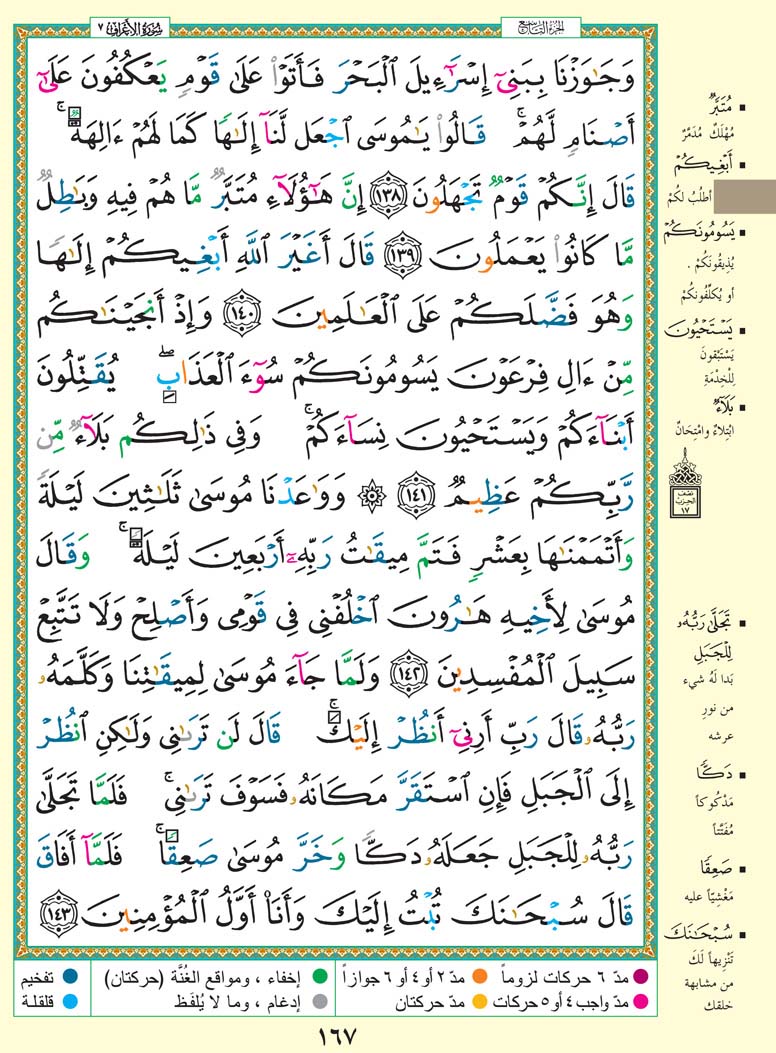 سُورَةُ الأَعْرَافِ ٧
الجُزْءُ التَّاسِعُ
وَجَٰوَزْنَا بِبَنِىٓ إِسْرَٰٓءِيلَ ٱلْبَحْرَ فَأَتَوْا۟ عَلَىٰ قَوْمٍ يَعْكُفُونَ عَلَىٰٓ
أَصْنَامٍ لَّهُمْ ۚ قَالُوا۟ يَٰمُوسَى ٱجْعَل لَّنَآ إِلَٰهًا كَمَا لَهُمْ ءَالِهَةٌ ۚ
قَالَ إِنَّكُمْ قَوْمٌ تَجْهَلُونَ ١٣٨ إِنَّ هَٰٓؤُلَآءِ مُتَبَّرٌ مَّا هُمْ فِيهِ وَبَٰطِلٌ
مَّا كَانُوا۟ يَعْمَلُونَ ١٣٩ قَالَ أَغَيْرَ ٱللَّهِ أَبْغِيكُمْ إِلَٰهًا
وَهُوَ فَضَّلَكُمْ عَلَى ٱلْعَٰلَمِينَ ١٤٠ وَإِذْ أَنجَيْنَٰكُم
مِّنْ ءَالِ فِرْعَوْنَ يَسُومُونَكُمْ سُوٓءَ ٱلْعَذَابِ ۖ يُقَتِّلُونَ
أَبْنَآءَكُمْ وَيَسْتَحْيُونَ نِسَآءَكُمْ ۚ وَفِى ذَٰلِكُم بَلَآءٌ مِّن
رَّبِّكُمْ عَظِيمٌ ١٤١ ۞ وَوَٰعَدْنَا مُوسَىٰ ثَلَٰثِينَ لَيْلَةً
وَأَتْمَمْنَٰهَا بِعَشْرٍ فَتَمَّ مِيقَٰتُ رَبِّهِۦٓ أَرْبَعِينَ لَيْلَةً ۚ وَقَالَ
مُوسَىٰ لِأَخِيهِ هَٰرُونَ ٱخْلُفْنِى فِى قَوْمِى وَأَصْلِحْ وَلَا تَتَّبِعْ
سَبِيلَ ٱلْمُفْسِدِينَ ١٤٢ وَلَمَّا جَآءَ مُوسَىٰ لِمِيقَٰتِنَا وَكَلَّمَهُۥ
رَبُّهُۥ قَالَ رَبِّ أَرِنِىٓ أَنظُرْ إِلَيْكَ ۚ قَالَ لَن تَرَىٰنِى وَلَٰكِنِ ٱنظُرْ
إِلَى ٱلْجَبَلِ فَإِنِ ٱسْتَقَرَّ مَكَانَهُۥ فَسَوْفَ تَرَىٰنِى ۚ فَلَمَّا تَجَلَّىٰ
رَبُّهُۥ لِلْجَبَلِ جَعَلَهُۥ دَكًّا وَخَرَّ مُوسَىٰ صَعِقًا ۚ فَلَمَّآ أَفَاقَ
قَالَ سُبْحَٰنَكَ تُبْتُ إِلَيْكَ وَأَنَا۠ أَوَّلُ ٱلْمُؤْمِنِينَ ١٤٣
▪ مُتَبَّرٌ
مُهْلَكٌ مُدَمَّرٌ
▪ أَبْغِيكُمْ
أطلُبُ لكُمْ
▪ يَسُومُونَكُمْ
يُذِيقُونَكُمْ .
أو يُكلِّفُونكُمْ
▪ يَسْتَحْيُونَ
يَسْتَبْقونَ
لِلْخِدْمَةِ
▪ بَلَآءٌ
ابْتِلاءٌ وامْتِحَانٌ
نصف
الحزب
١٧
▪ تَجَلَّىٰ رَبُّهُۥ
لِلْجَبَلِ
بَدا لَهُ شيء
من نورِ
عرشه
▪ دَكًّا
مَدْكُوكاً
مُفَتَّتاً
▪ صَعِقًا
مَغْشِيّاً عليه
▪ سُبْحَٰنَكَ
تَنْزِيهاً لَكَ
من مشابهة
خلقك
مدّ ٦ حركات لزوماً مدّ ٢ أو ٤ أو ٦ جوازاً إخفاء ، ومواقع الغُنَّة (حركتان) تفخيم
مدّ واجب ٤ أو ٥ حركات مدّ حركتان إدغام ، وما لا يُلفَظ قلقلة
١٦٧